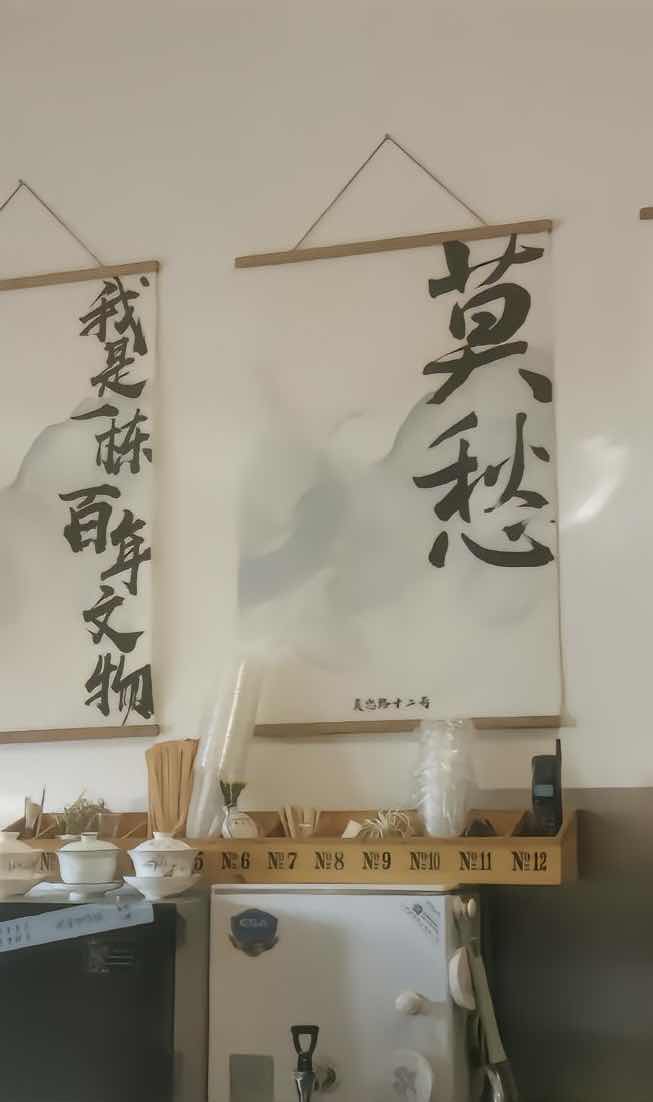 我是一栋百年文物
莫愁
莫愁路十二号
5 №6 №7 №8 №9 №10 №11 №12